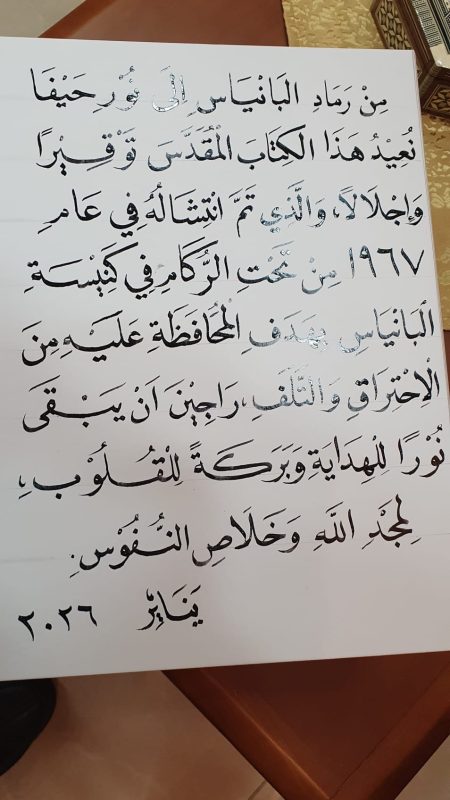 مِنْ رَمَادِ البَانْيَاسِ إِلَى نُوْرِ حَيْفَا
نُعِيْدُ هَذَا الكِتَابَ الْمُقَدَّسَ تَوْقِيْرًا
وَإِجْلَالاً، وَالَّذِي تَمَّ انْتِشَالُهُ فِي عَامِ
١٩٦٧ مِنْ تَحْتِ الرُّكَامِ فِي كَنِيْسَةِ
الْبَانْيَاسِ بِهَدَفِ الْمُحَافَظَةِ عَلَيْهِ مِنَ
الْاِحْتِرَاقِ وَالتَّلَفِ، رَاجِيْنَ اَنْ يَبْقَى
نُوْرًا لِلْهِدَايَةِ وَبَرَكَةً لِلْقُلُوْبِ،
لِمَجْدِ اللَّهِ وَخَلَاصِ النُّفُوْسِ.
يَنَايِرْ ٢٠٢٦